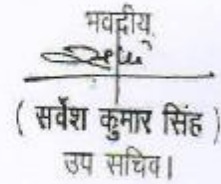 भवदीय,
( सर्वेश कुमार सिंह )
उप सचिव।